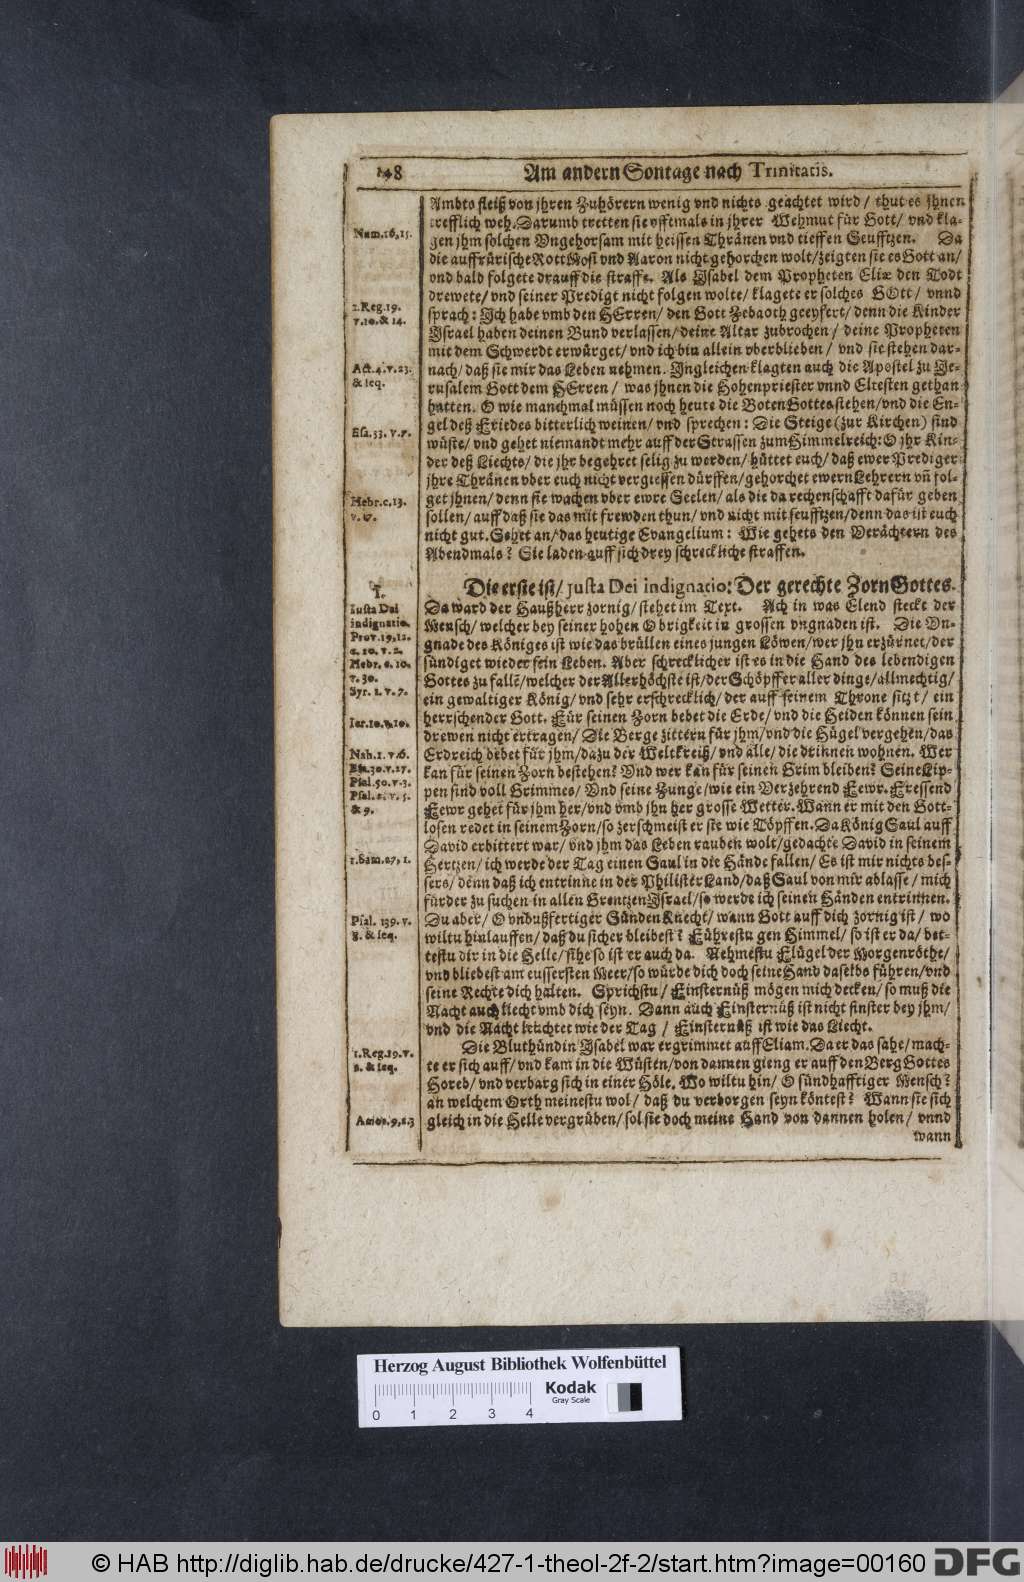 148 Am andern Sontage nach Trinitatis.
Ambts fleiß von jhren Zuhörern wenig vnd nichts geachtet wird / thut es jhnen
trefflich weh. Darumb tretten sie offtmals in jhrer Wehmut für Gott / vnd kla-
Num.16,15. gen jhm solchen Vngehorsam mit heissen Thränen vnd tieffen Seufftzen. Da
die auffrürische Rott Mosi vnd Aaron nicht gehorchen wolt / zeigten sie es Gott an /
vnd bald folgete drauff die straffe. Als Isabel dem Propheten Eliæ den Todt
drewete / vnd seiner Predigt nicht folgen wolte / klagete er solches GOtt / vnnd
1.Reg.19. sprach: Ich habe vmb den HErren / den Gott Zebaoth geeyfert / denn die Kinder
v.10.& 14. Israel haben deinen Bund verlassen / deine Altar zubrochen / deine Propheten
mit dem Schwerdt erwürget / vnd ich bin allein vberblieben / vnd sie stehen dar-
Act.4.v.23. nach / daß sie mir das Leben nehmen. Ingleichen klagten auch die Apostel zu Je-
& seq. rusalem Gott dem HErren / was jhnen die Hohenpriester vnnd Eltesten gethan
hatten. O wie manchmal müssen noch heute die Boten Gottes stehen / vnd die En-
gel deß Friedes bitterlich weinen / vnd sprechen: Die Steige (zur Kirchen) sind
Esa.33. v.7. wüste / vnd gehet niemandt mehr auff der Strassen zum Himmelreich: O jhr Kin-
der deß Liechts / die jhr begehret selig zu werden / hüttet euch / daß ewer Prediger
jhre Thränen vber euch nicht vergiessen dürffen / gehorchet ewern Lehrern vñ fol-
Hebr.c.13. get jhnen / denn sie wachen vber ewre Seelen / als die da rechenschafft dafür geben
v.17. sollen / auff daß sie das mit frewden thun / vnd nicht mit seufftzen / denn das ist euch
nicht gut. Sehet an / das heutige Evangelium: Wie gehets den Verächtern des
Abendmals? Sie laden auff sich drey schreckliche straffen.
I. Die erste ist / justa Dei indignatio: Der gerechte Zorn Gottes.
Iusta Dei Da ward der Haußherr zornig / stehet im Text. Ach in was Elend stecke der
indignatio. Mensch / welcher bey seiner hohen Obrigkeit in grossen vngnaden ist. Die Vn-
Prov.19,12. gnade des Königes ist wie das brüllen eines jungen Löwen / wer jhn erzürnet / der
c.20. v.2. sündiget wieder sein Leben. Aber schrecklicher ist es in die Hand des lebendigen
Hebr. c.10.
v.30. Gottes zu fallẽ / welcher der Allerhöchste ist / der Schöpffer aller dinge / allmechtig /
Syr. 1. v.7. ein gewaltiger König / vnd sehr erschrecklich / der auff seinem Throne sitzt / ein
Ier.10.v.10. herrschender Gott. Für seinen Zorn bebet die Erde / vnd die Heiden können sein
drewen nicht ertragen / Die Berge zittern für jhm / vnd die Hügel vergehen / das
Nah.1. v.6. Erdreich bebet für jhm / dazu der Weltkreiß / vnd alle / die drinnen wohnen. Wer
Esa.30.v.27. kan für seinen Zorn bestehen? Vnd wer kan für seinen Grim bleiben? Seine Lip-
Psal.50.v.3. pen sind voll Grimmes / Vnd seine Zunge / wie ein Verzehrend Fewr. Fressend
Psal.2. v.5. Fewr gehet für jhm her / vnd vmb jhn her grosse Wetter. Wann er mit den Gott-
& 9. losen redet in seinem Zorn / so zerschmeist er sie wie Töpffen. Da König Saul auff
David erbittert war / vnd jhm das Leben rauben wolt / gedachte David in seinem
1.Sam.27,1. Hertzen / ich werde der Tag einen Saul in die Hände fallen / Es ist mir nichts bes-
sers / denn daß ich entrinne in der Philister Land / daß Saul von mir ablasse / mich
fürder zu suchen in allen Grentzen Israel / so werde ich seinen Händen entrinnen.
Psal. 139. v. Du aber / O vnbußfertiger Sünden Knecht / wann Gott auff dich zornig ist / wo
8. & seq. wiltu hinlauffen / daß du sicher bleibest? Führestu gen Himmel / so ist er da / bet-
testu dir in die Helle / sihe so ist er auch da. Nehmestu Flügel der Morgenröthe /
vnd bliebest am eussersten Meer / so würde dich doch seine Hand daselbs führen / vnd
seine Rechte dich halten. Sprichstu / Finsternüß mögen mich decken / so muß die
Nacht auch liecht vmb dich seyn. Dann auch Finsternüß ist nicht finster bey jhm /
vnd die Nacht leuchtet wie der Tag / Finsternüß ist wie das Liecht.
Die Bluthündin Isabel war ergrimmet auff Eliam. Da er das sahe / mach-
1.Reg.19. v. te er sich auff / vnd kam in die Wüsten / von dannen gieng er auff den Berg Gottes
& seq. Horeb / vnd verbarg sich in einer Höle. Wo wiltu hin / O sündhafftiger Mensch?
an welchem Orth meinestu wol / daß du verborgen seyn köntest? Wann sie sich
Amos.9,2.3 gleich in die Helle vergrüben / sol sie doch meine Hand von dannen holen / vnnd
wann
Herzog August Bibliothek Wolfenbüttel
Kodak
Gray Scale
0 1 2 3 4
© HAB http://diglib.hab.de/drucke/427-1-theol-2f-2/start.htm?image=00160 DFG